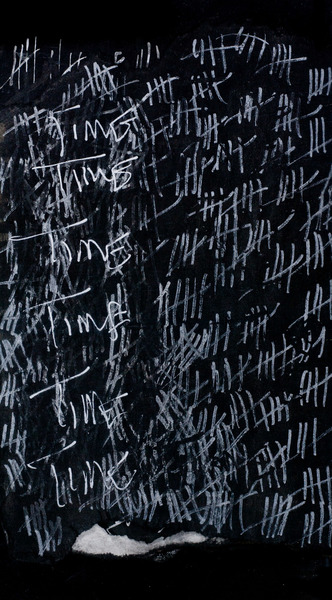 TIME
TIME
TIME
TIME
TIME
TIME